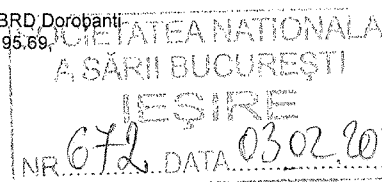 BRD Dorobanti
95.69,
SOCIETATEA NATIONALA
A SĂRII BUCUREȘTI
IEȘIRE
NR 672 DATA 03 02 20